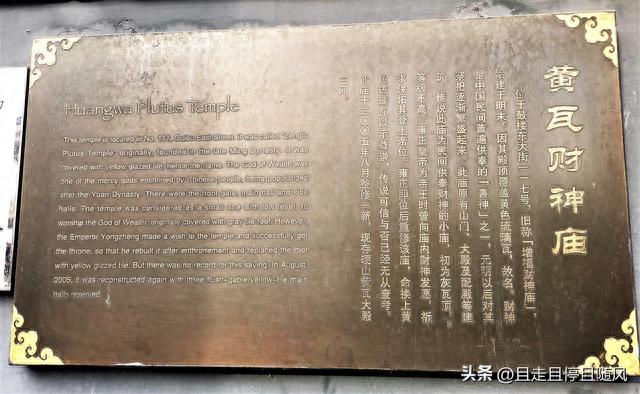 黄瓦财神庙
位于鼓楼东大街一一七号，旧称「增福财神庙」，
始建于明末。因其殿顶覆盖黄色琉璃瓦，故名。财神
是中国民间普遍供奉的「善神」之一，元明以后对其
崇拜逐渐繁盛起来。此庙原有山门、大殿及配殿等建
筑，传说此庙为民间供奉财神的小庙，初为灰瓦顶，
等级不高，雍正皇帝为亲王时曾向庙内财神发愿，祈
求保佑其登上帝位。雍正即位后重修该庙，命换上黄
色琉璃瓦以示尊崇。传说可信与否已经无从查考。
此庙于二〇〇五年八月整修一新，现存硬山黄瓦大殿
三间。
Huangwa Plutus Temple
This temple is located in No. 117, Gulou East Street. It was called "Zengfu
Plutus Temple" originally, founded in the late Ming Dynasty. It was
covered with yellow glazed tile, hence the name. The God of Wealth was
one of the mercy gods enshrined by Chinese people, being popularized
after the Yuan Dynasty. There were the front gate, main hall and side
halls. The temple was considered as a small one with low level, to
worship the God of Wealth, originally covered with gray tile roof. However,
the Emperor Yongzheng made a wish to the temple and successfully got
the throne, so that he rebuilt it after enthronement and replaced the roof
with yellow glazed tile. But there was no record for this saying. In August,
2005, it was reconstructed again with three flush-gable yellow-tile main
halls reserved.
头条 @且走且停且随风